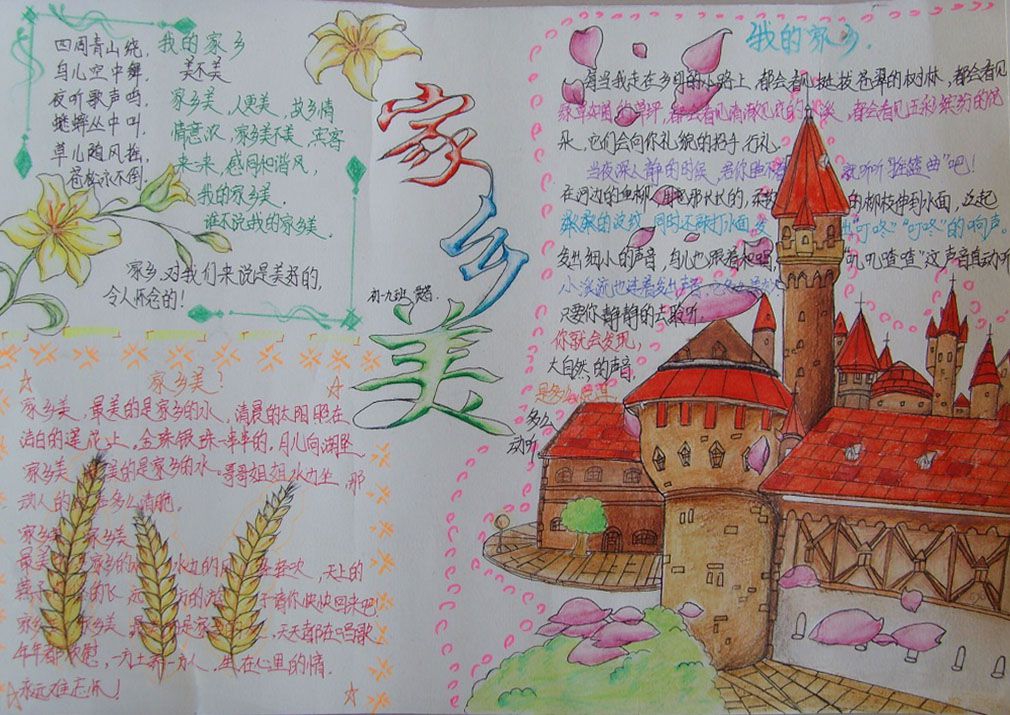 四周青山绕，
鸟儿空中舞，
夜听歌声鸣，
蟋蟀丛中叫，
草儿随风摇，
苍松永不倒。
我的家乡
美不美
家乡美，人更美，故乡情
情意浓，家乡美不美，宾客
来一来，感同和谐风，
我的家乡美．
谁不说我的家乡美．
家乡，对我们来说是美好的，
令人怀念的！
家乡美
初一九班
家乡美！
家乡美，最美的是家乡的水，清晨的太阳照在
洁白的莲花上，金珠银珠一串串的，月儿向湖里
家乡美，美的是家乡的水。哥哥姐姐水边坐，那
动人的多么清脆。
家乡美 家乡美
最美 家乡的 水边的 轻吹，天上的
燕子 的飞 远方的 子请你快快回来吧
家乡 家乡美，最 是家 ，天天都在唱歌
年年都欢慰，一方土养一方人，生在心里的情．
永远难忘怀！
我的家乡．
每当我走在乡间的小路上，都会看见挺拔苍翠的树林，都会看见
绿草如茵的草坪，都会看见清澈见底的小溪，都会看见五彩缤纷的花
朵，它们会向你礼貌的招手，行礼。
当夜深人静的时候，若你 就听听“摇篮曲”吧！
在河边的垂柳， 那长长的，柔 的柳枝伸到水面，泛起
粼粼的波纹，同时还敲打水面，发出“叮咚”“叮咚”的响声。
发出细小的声音，鸟儿也跟着和唱，“叽叽喳喳”这声音真动听
小溪流也连着发出声音，
只要你静静的去聆听，
你就会发现，
大自然的声音，
是多么
多么
动听